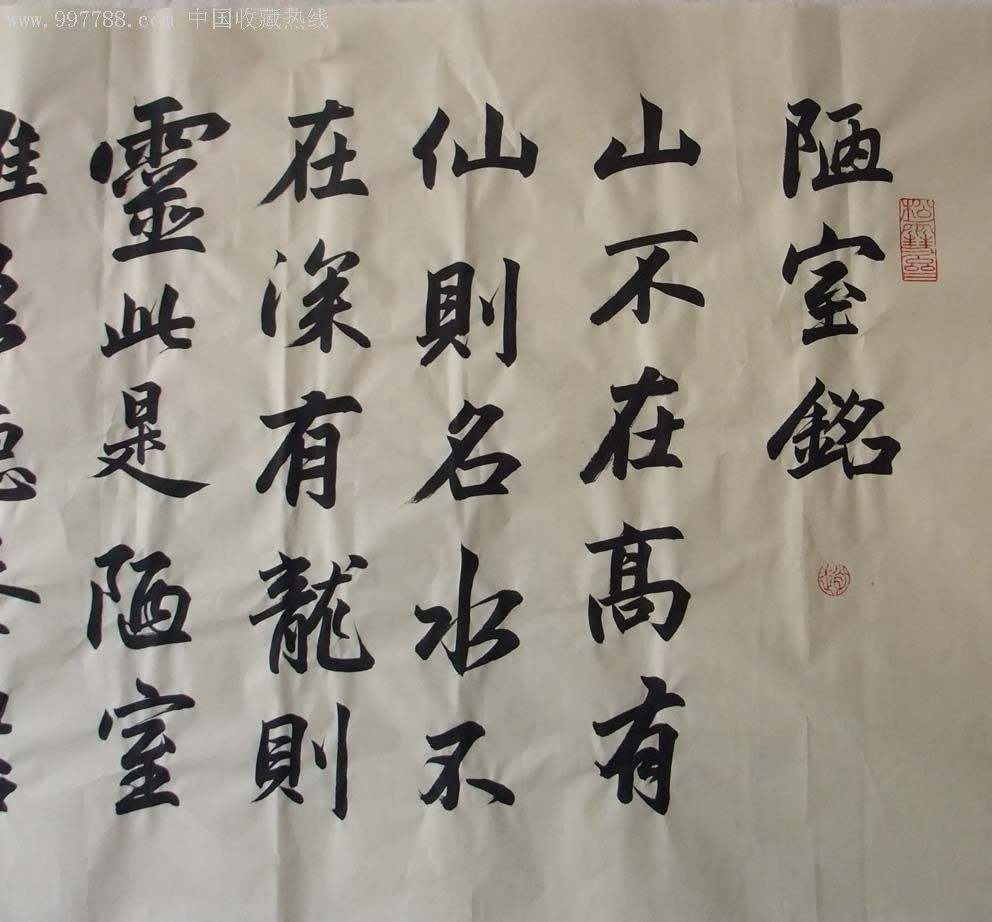 www.997788.com 中国收藏热线
陋室銘
山不在髙有
仙則名水不
在深有龍則
靈此是陋室